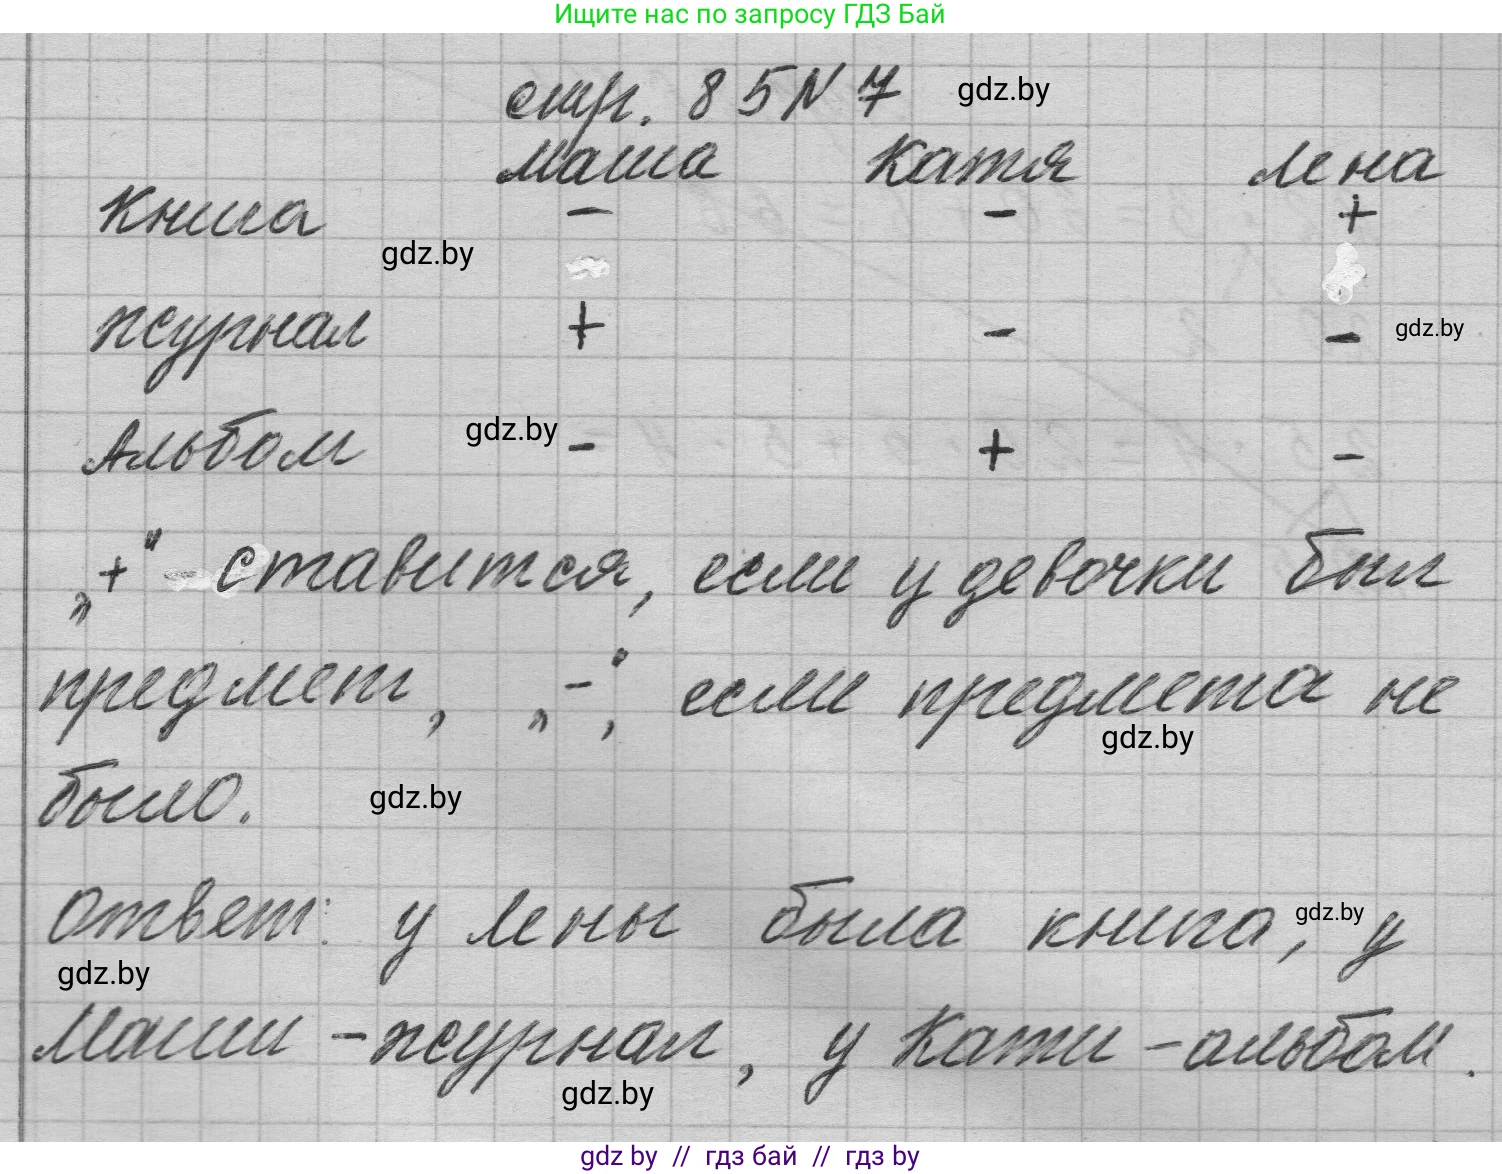 Ищите нас по запросу ГДЗ Бай
стр. 85 N 7 gdz.by
Маша Катя Лена
Книга - - +
gdz.by
журнал + - - gdz.by
Альбом gdz.by - + -
„+“ - ставится, если у девочки был
предмет, „-“, если предмета не
gdz.by
было. gdz.by
Ответ: у Лены была книга, у gdz.by
gdz.by
Маши - журнал, у Кати - альбом.
gdz.by
gdz by // гдз бай // гдз by